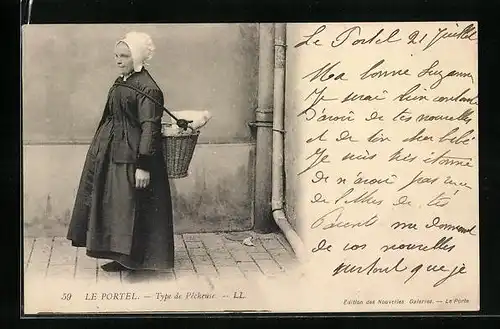 Le Portel 21 Juillet
Ma bonne Suzanne
Je serai bien contente
d'avoir de tes nouvelles
et de ton cher bébé
Je suis très étonnée
de n'avoir pas vue
de tes
Parents me donnant
de vos nouvelles
surtout que je
59 LE PORTEL. — Type de Pêcheuse. — LL.
Edition des Nouvelles Galeries. — Le Porte